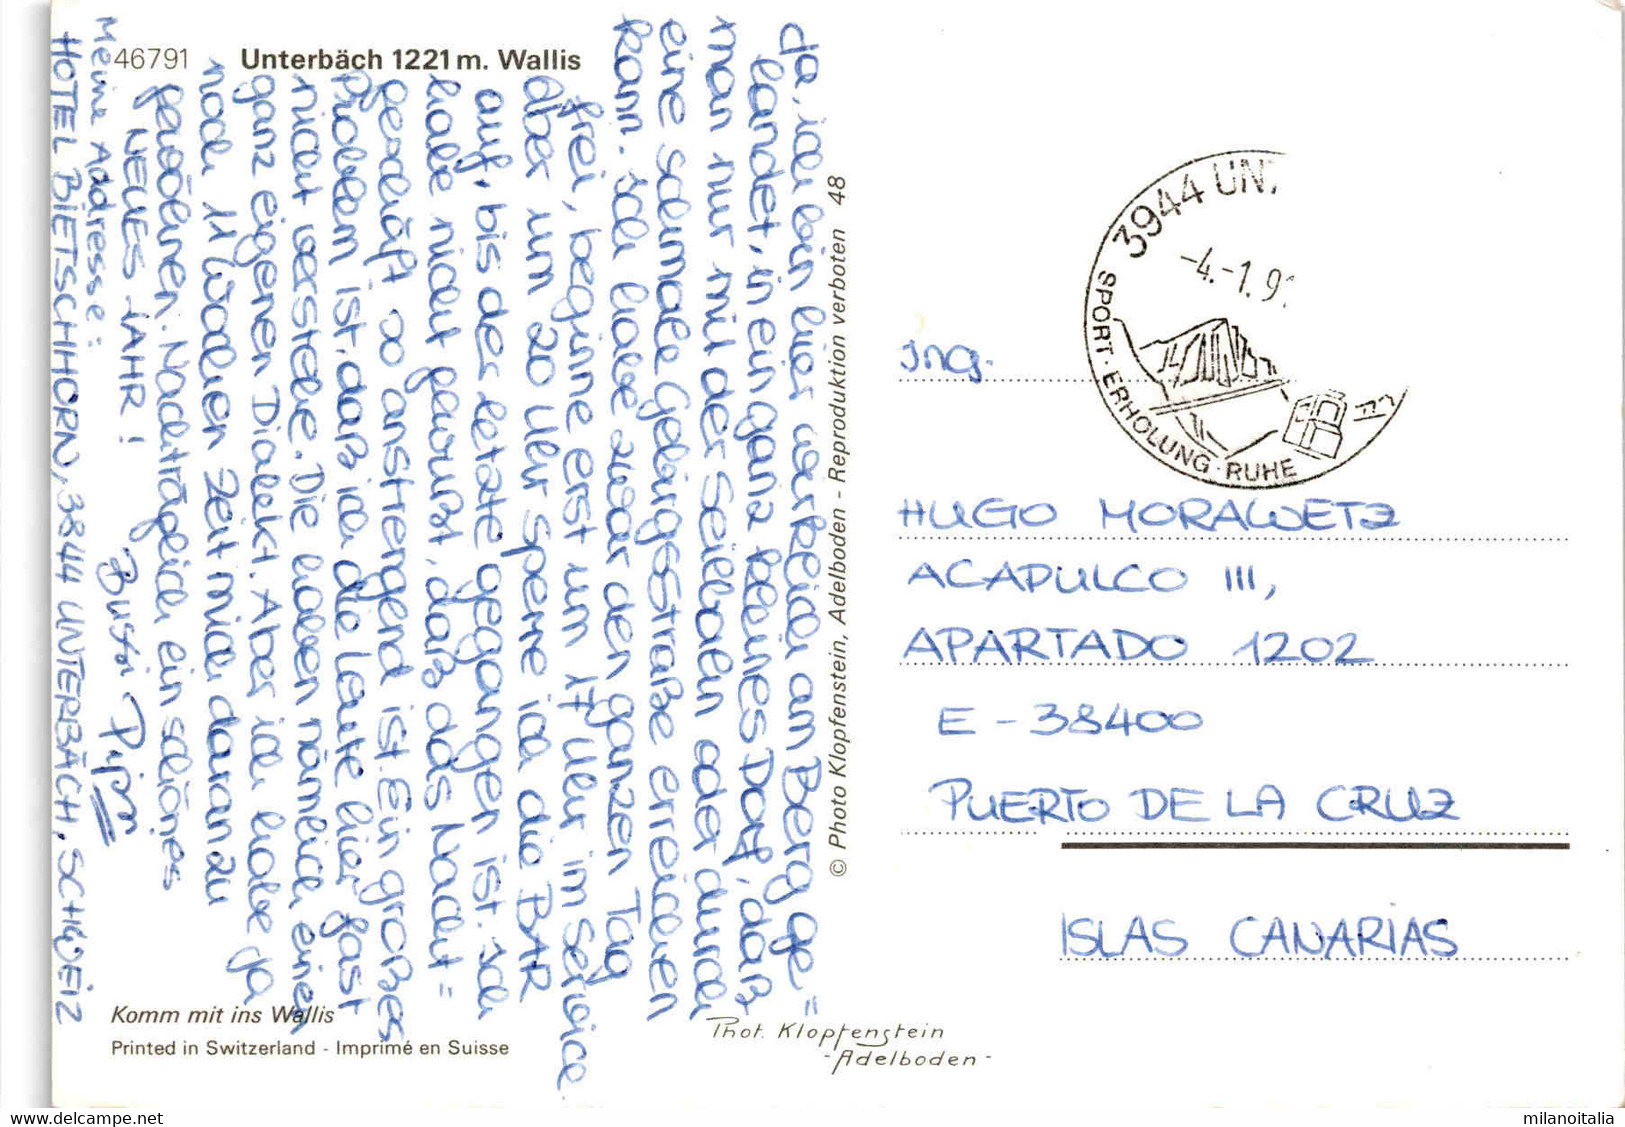 46791 Unterbäch 1221 m. Wallis
Ja, ich bin hier wirklich am Berg ge=
landet, in ein ganz kleines Dorf, daß
man nur mit der Seilbahn oder durch
eine schmale Gebirgsstraße erreichen
kann. Ich habe zwar den ganzen Tag
frei, beginne erst um 17 Uhr im Service
aber um 20 Uhr sperre ich die BAR
auf, bis der letzte gegangen ist. Ich
habe nicht gewußt, daß das Nacht=
geschäft so anstrengend ist. Ein großes
Problem ist, daß ich die Leute hier fast
nicht verstehe. Die haben nämlich einen
ganz eigenen Dialekt. Aber ich habe ja
noch 11 Wochen Zeit mich daran zu
gewöhnen. Nachträglich ein schönes
NEUES JAHR!
Bussi Pipm
Meine Addresse:
HOTEL BIETSCHHORN, 3844 UNTERBÄCH, SCHWEIZ
Komm mit ins Wallis
Printed in Switzerland - Imprimé en Suisse
© Photo Klopfenstein, Adelboden - Reproduktion verboten 48
Phot. Klopfenstein
- Adelboden -
3944 UNT
-4.-1.9
SPORT · ERHOLUNG · RUHE
Ing.
HUGO MORAWETZ
ACAPULCO III,
APARTADO 1202
E - 38400
PUERTO DE LA CRUZ
ISLAS CANARIAS
milanoitalia